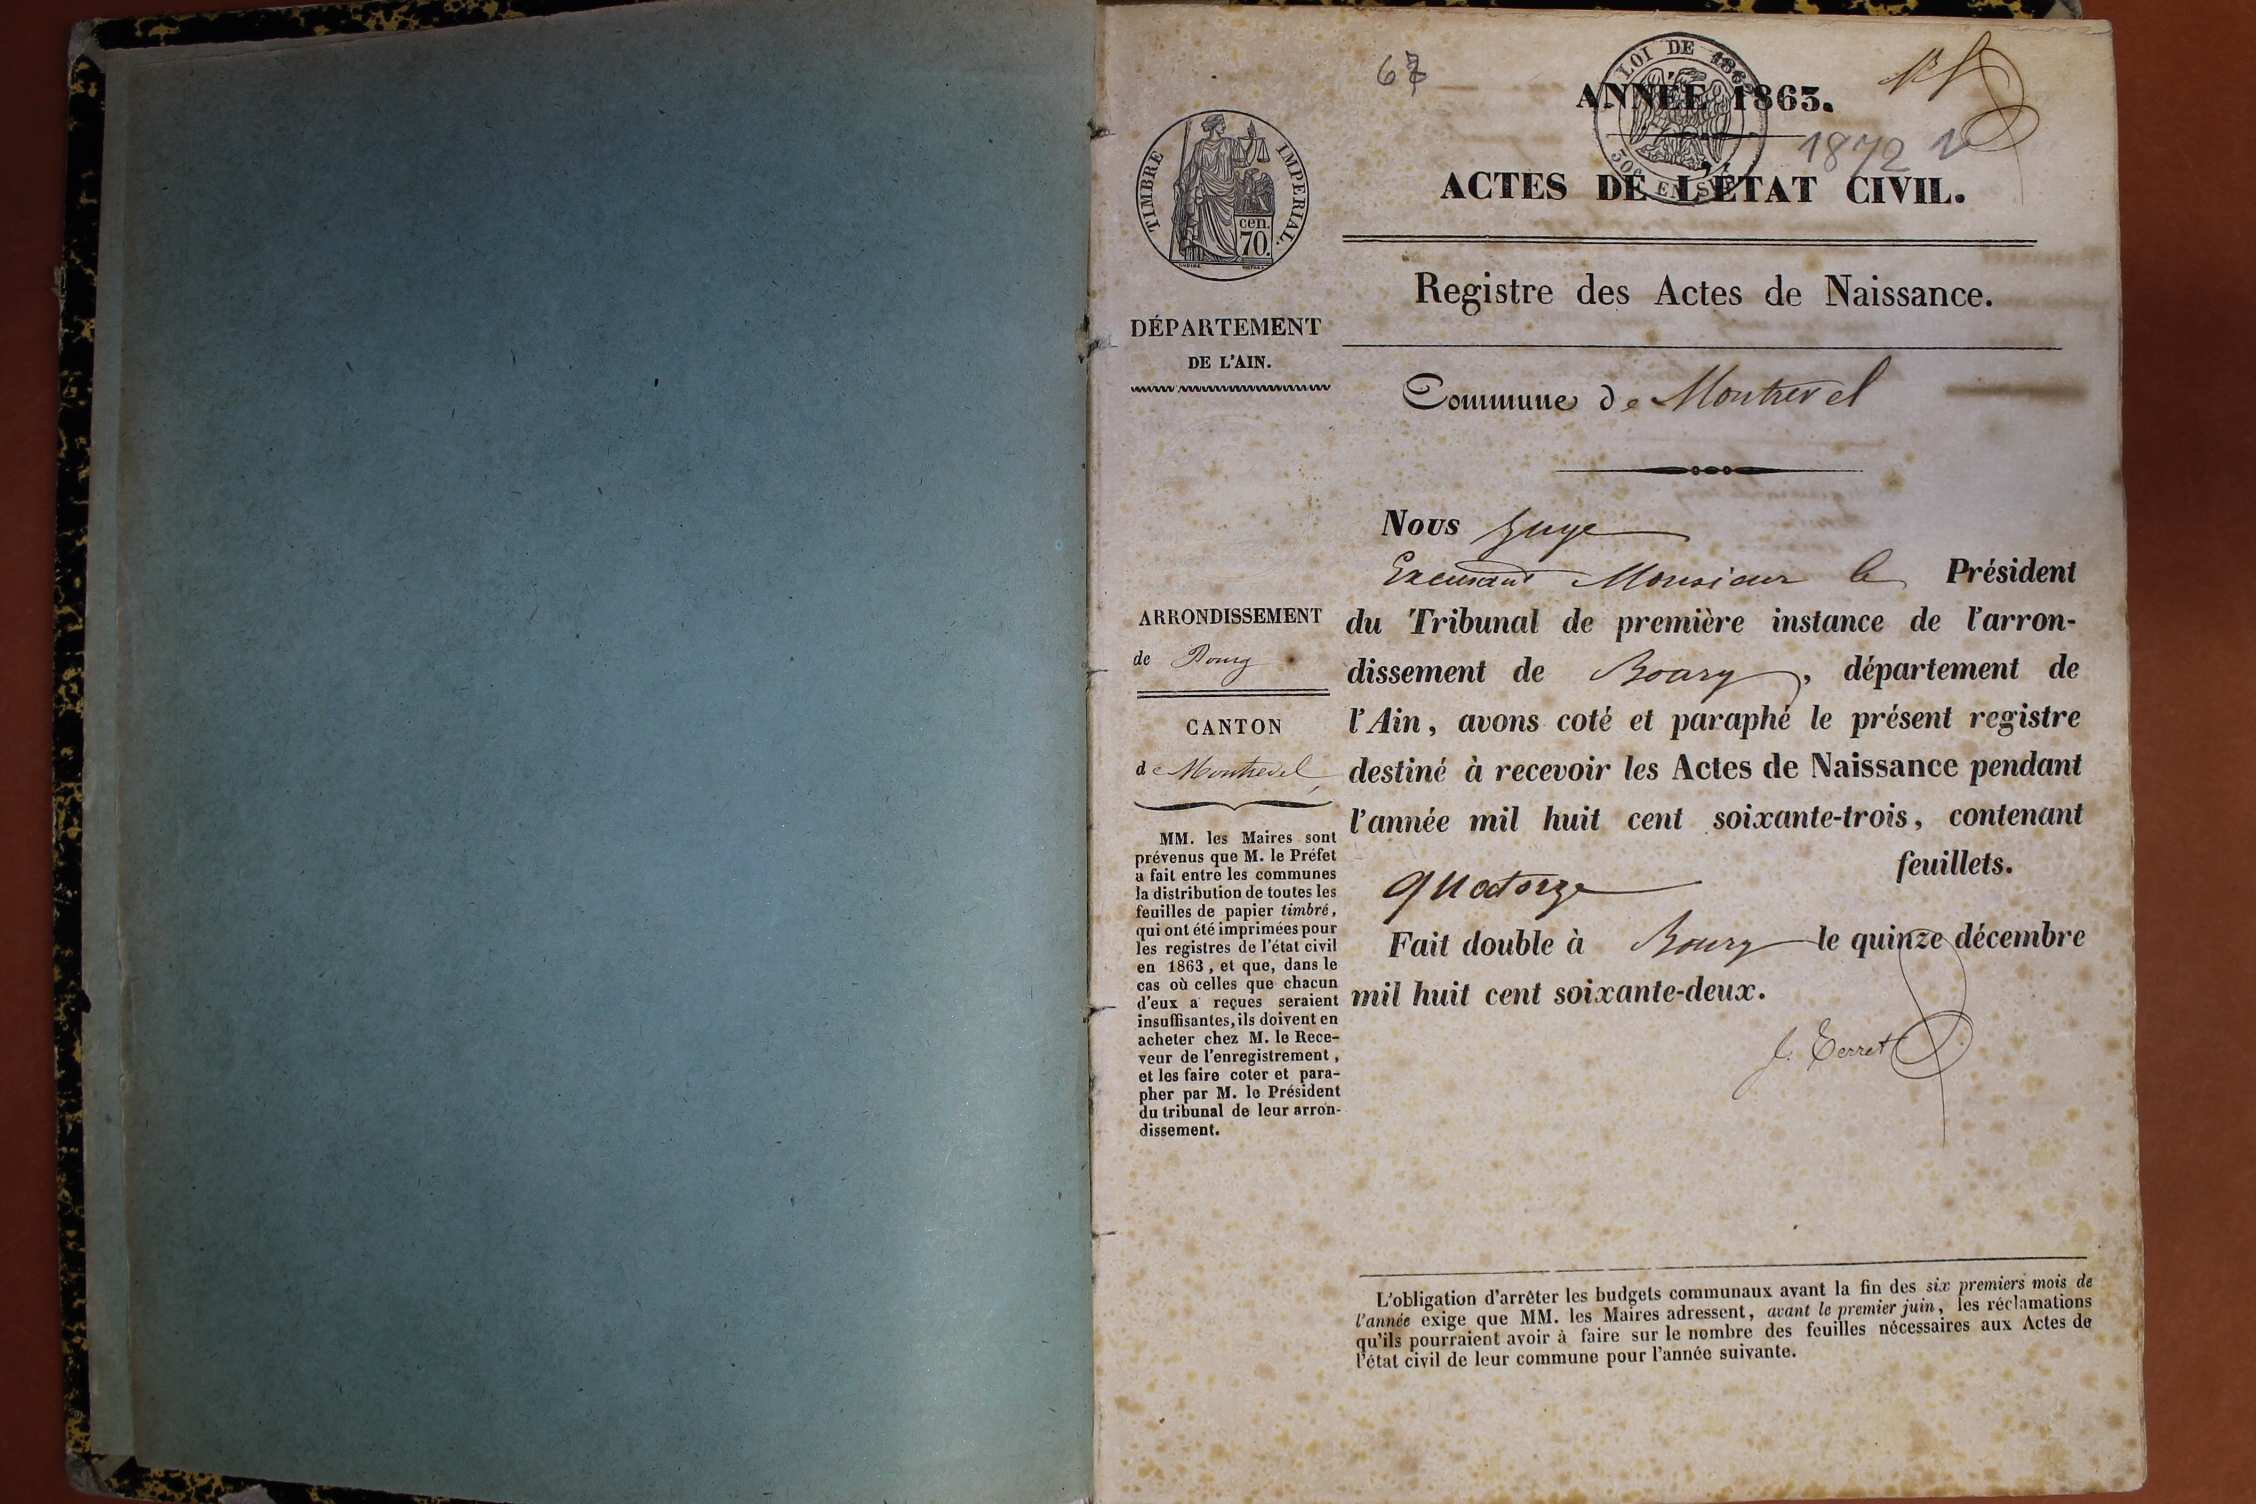 67
ANNÉE 1863.
LOI DE 1862
30c EN SUS
1872
TIMBRE IMPERIAL.
cen.
70.
ACTES DE L'ÉTAT CIVIL.
Registre des Actes de Naissance.
DÉPARTEMENT
DE L'AIN.
Commune de Montrevel
ARRONDISSEMENT
de Bourg
CANTON
de Montrevel
MM. les Maires sont
prévenus que M. le Préfet
a fait entre les communes
la distribution de toutes les
feuilles de papier timbré,
qui ont été imprimées pour
les registres de l'état civil
en 1863, et que, dans le
cas où celles que chacun
d'eux a reçues seraient
insuffisantes, ils doivent en
acheter chez M. le Rece-
veur de l'enregistrement,
et les faire coter et para-
pher par M. le Président
du tribunal de leur arron-
dissement.
Nous Juge
Excusant Monsieur le Président
du Tribunal de première instance de l'arron-
dissement de Bourg, département de
l'Ain, avons coté et paraphé le présent registre
destiné à recevoir les Actes de Naissance pendant
l'année mil huit cent soixante-trois, contenant
quatorze feuillets.
Fait double à Bourg le quinze décembre
mil huit cent soixante-deux.
J. Terret
L'obligation d'arrêter les budgets communaux avant la fin des six premiers mois de
l'année exige que MM. les Maires adressent, avant le premier juin, les réclamations
qu'ils pourraient avoir à faire sur le nombre des feuilles nécessaires aux Actes de
l'état civil de leur commune pour l'année suivante.